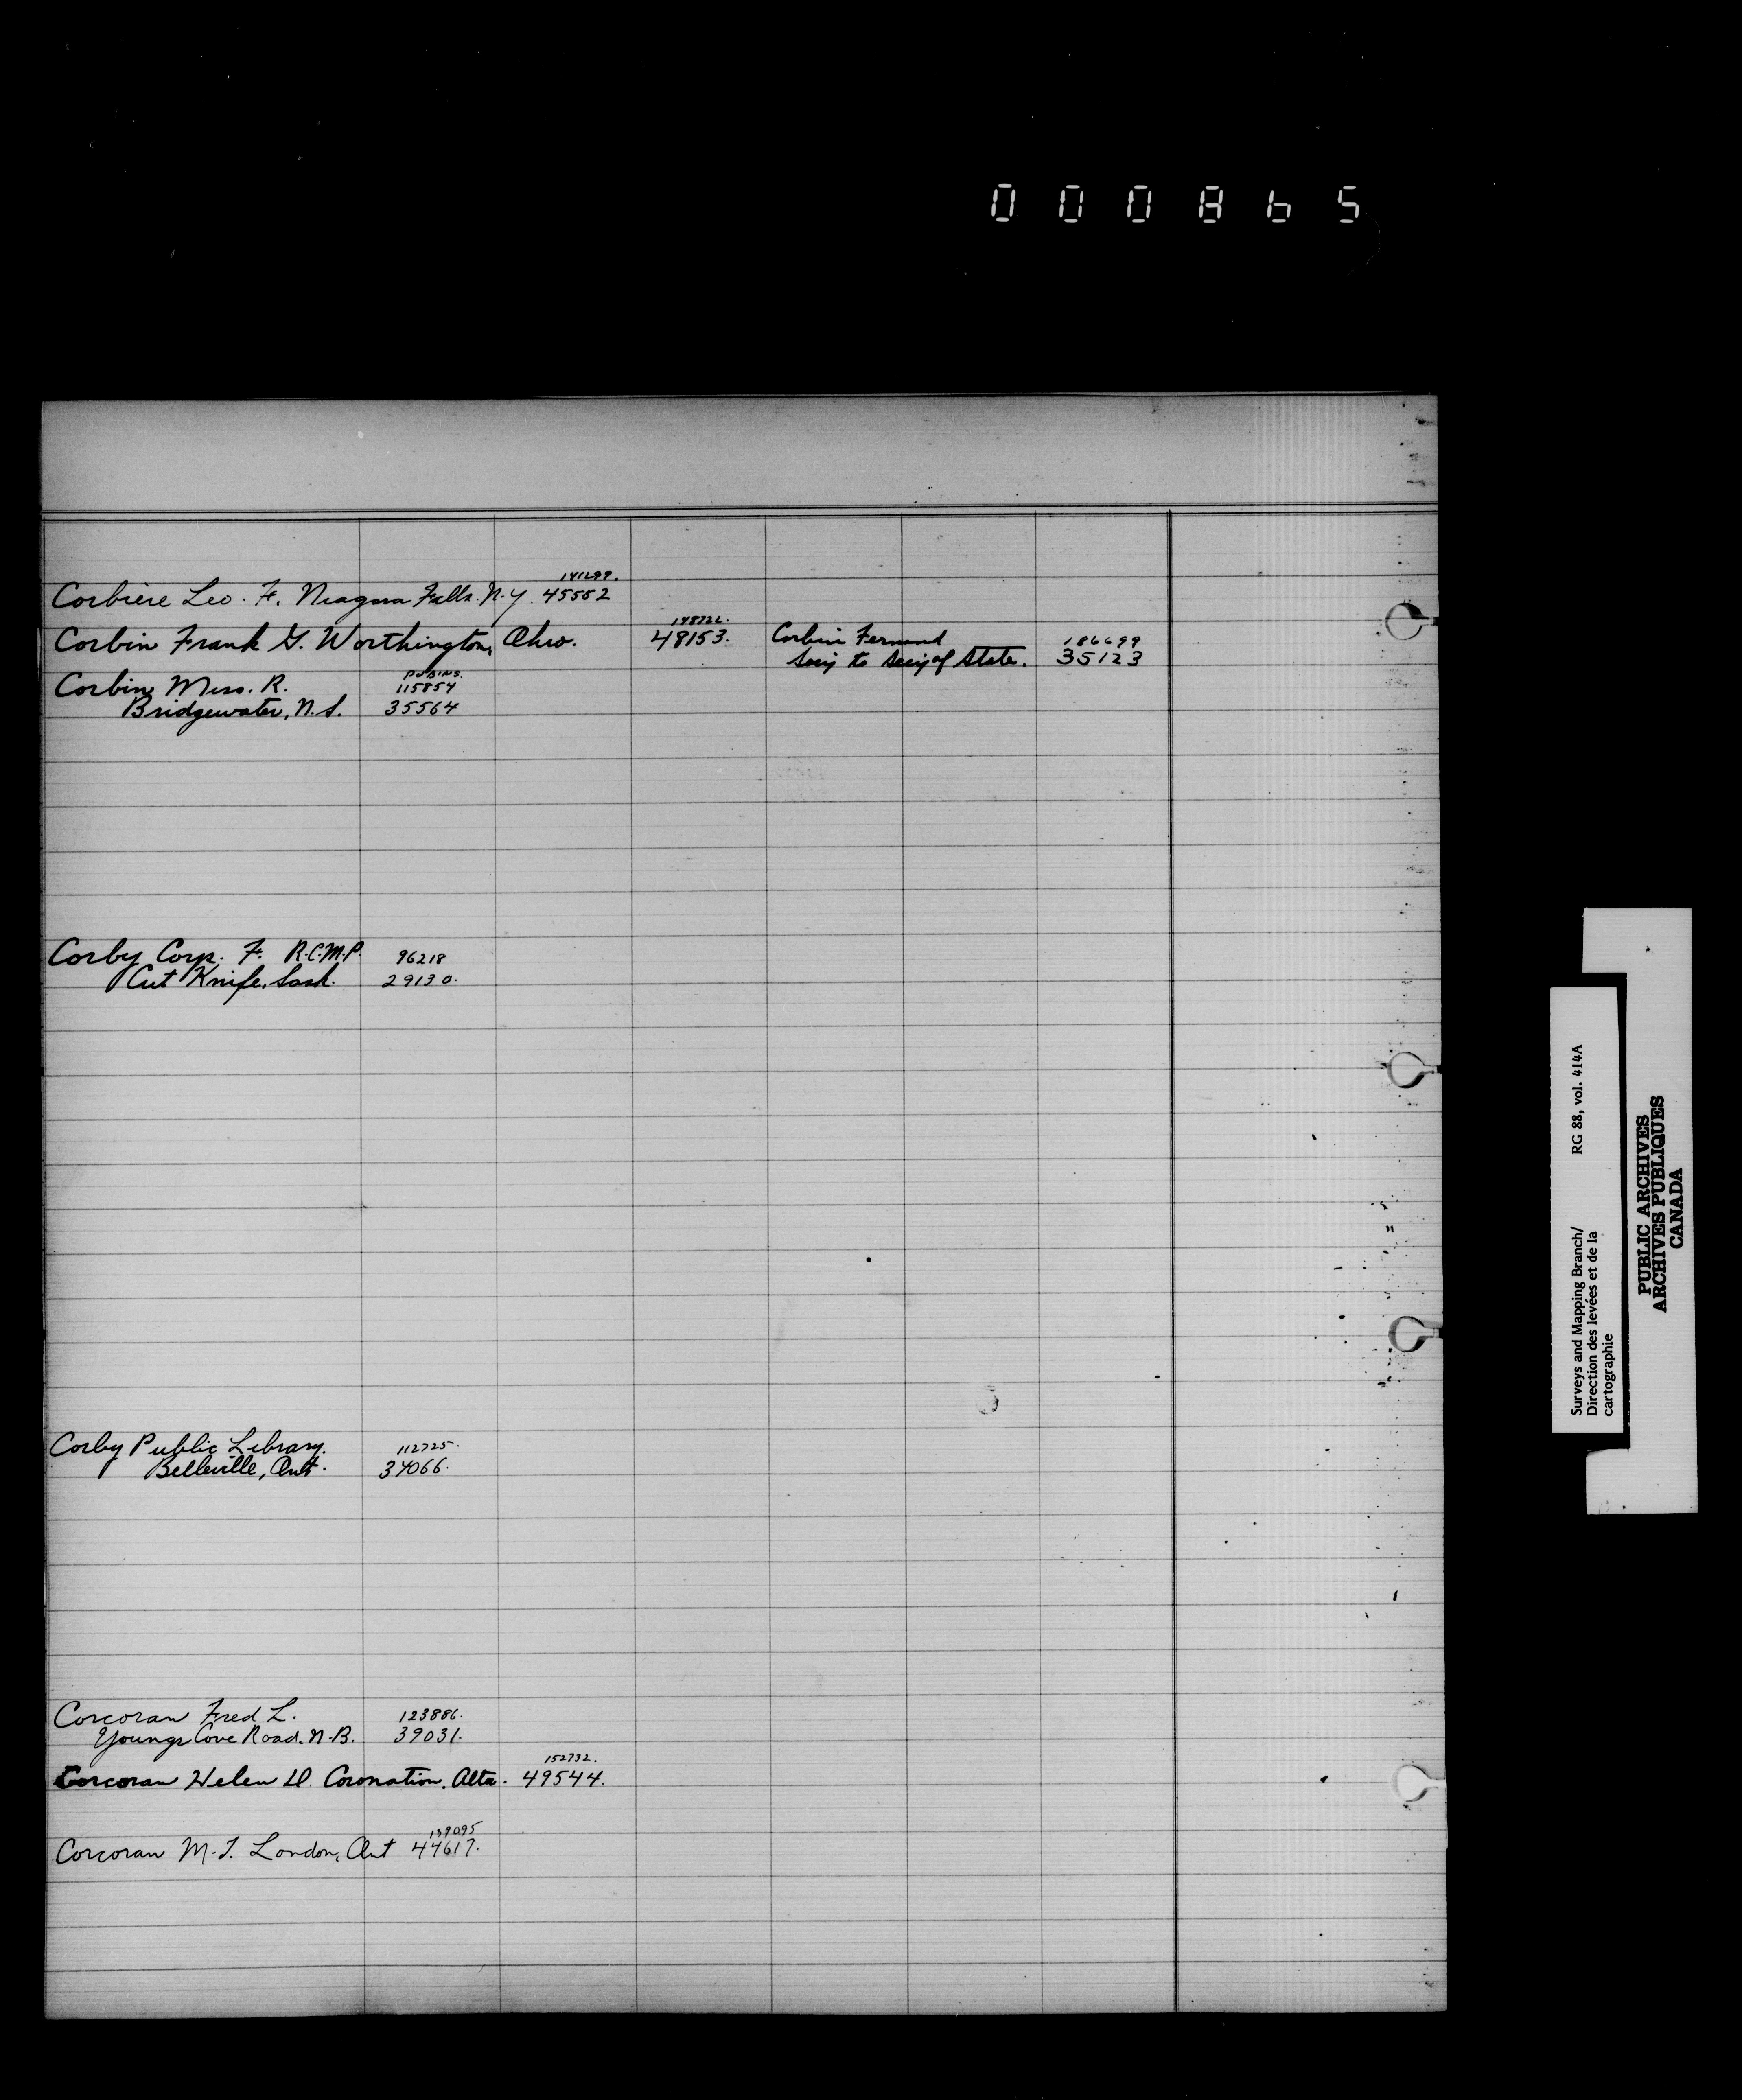 000865
141299.
Corbiere Leo. F. Niagara Falls. N.Y. 45552
Corbin Frank G. Worthington, Ohio. 48153.
Corbin Fernand 186699
Secy to Secy of State. 35123
Corbin, Miss. R. 115854
Bridgewater, N.S. 35564
Corby Corp. F. R.C.M.P. 96218
Cut Knife, Sask. 29130.
Corby Public Library. 112725.
Belleville, Ont. 34066.
Corcoran Fred L. 123886.
Youngs Cove Road. N.B. 39031.
152732.
Corcoran Helen D. Coronation. Alta. 49544.
139095
Corcoran M.J. London, Ont 44617.
Surveys and Mapping Branch/ RG 88, vol. 414A
Direction des levées et de la
cartographie
PUBLIC ARCHIVES
ARCHIVES PUBLIQUES
CANADA